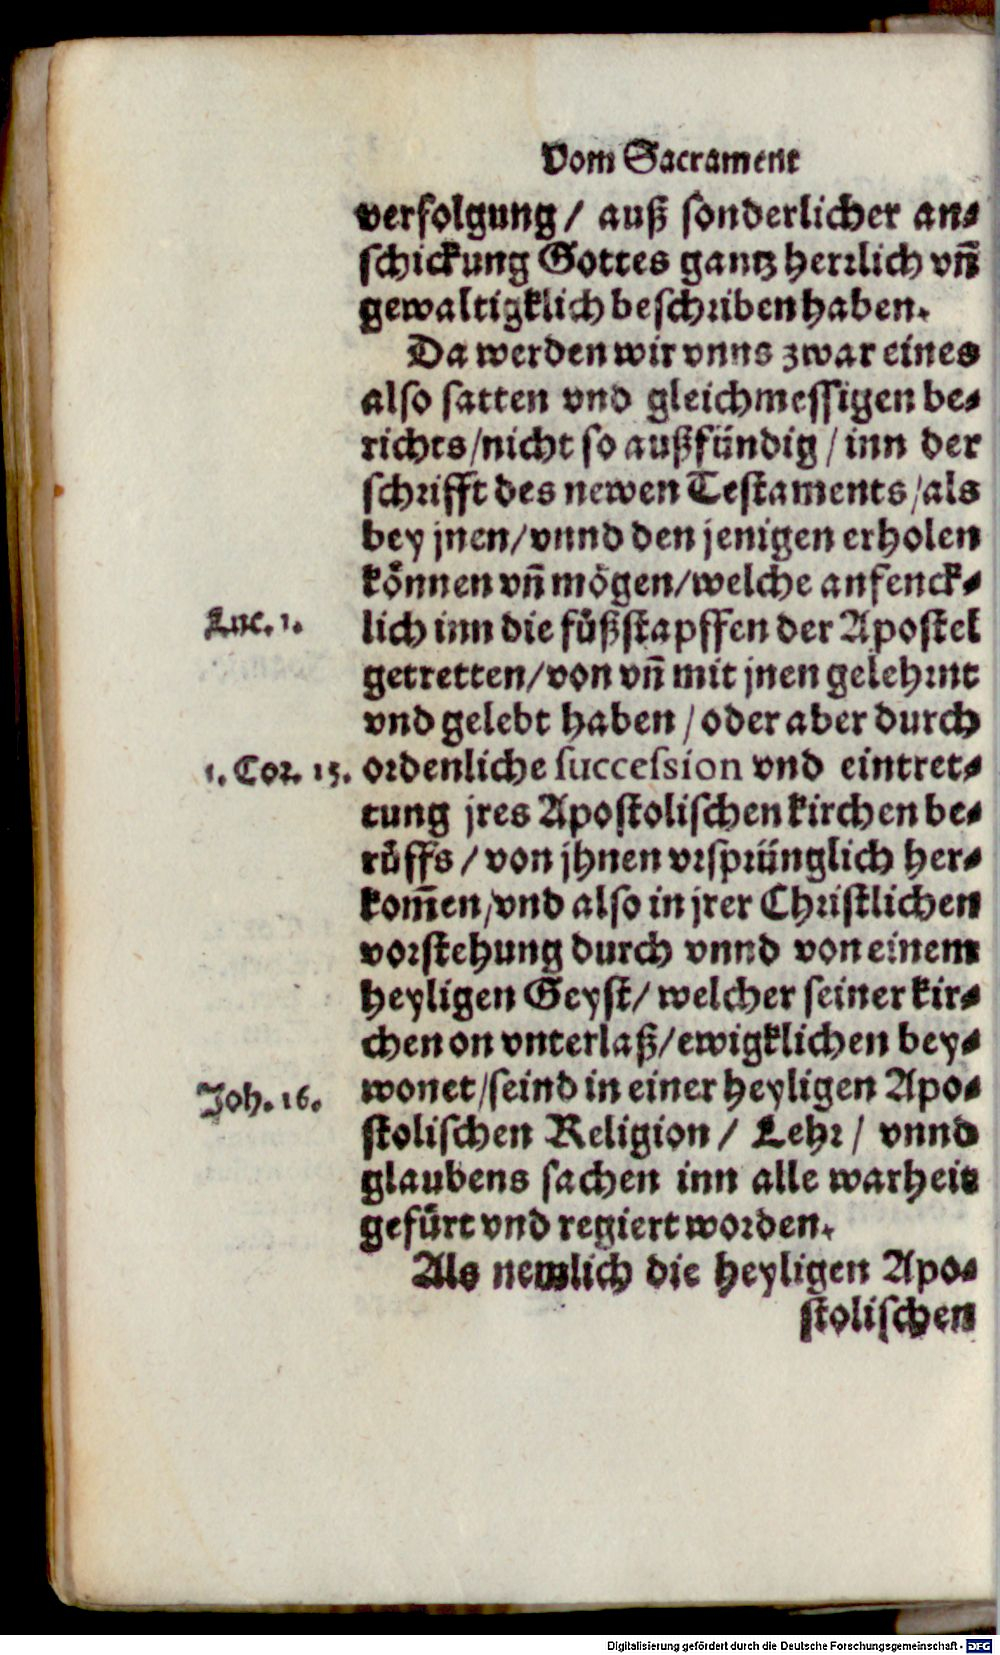 Vom Sacrament
verfolgung / auß sonderlicher an⸗
schickung Gottes gantz herrlich vñ
gewaltigklich beschriben haben.
Da werden wir vnns zwar eines
also satten vnd gleichmessigen be⸗
richts / nicht so außfündig / inn der
schrifft des newen Testaments / als
bey jnen / vnnd den jenigen erholen
können vñ mögen / welche anfenck⸗
Luc. 1.
lich inn die fůßstapffen der Apostel
getretten / von vñ mit jnen gelehrnt
vnd gelebt haben / oder aber durch
1. Cor. 15.
ordenliche succession vnd eintret⸗
tung jres Apostolischen kirchen be⸗
růffs / von jhnen vrsprünglich her⸗
kom̄en / vnd also in jrer Christlichen
vorstehung durch vnnd von einem
heyligen Geyst / welcher seiner kir⸗
chen on vnterlaß / ewigklichen bey⸗
Joh. 16.
wonet / seind in einer heyligen Apo⸗
stolischen Religion / Lehr / vnnd
glaubens sachen inn alle warheit
gefürt vnd regiert worden.
Als nemlich die heyligen Apo⸗
stolischen
Digitalisierung gefördert durch die Deutsche Forschungsgemeinschaft - DFG